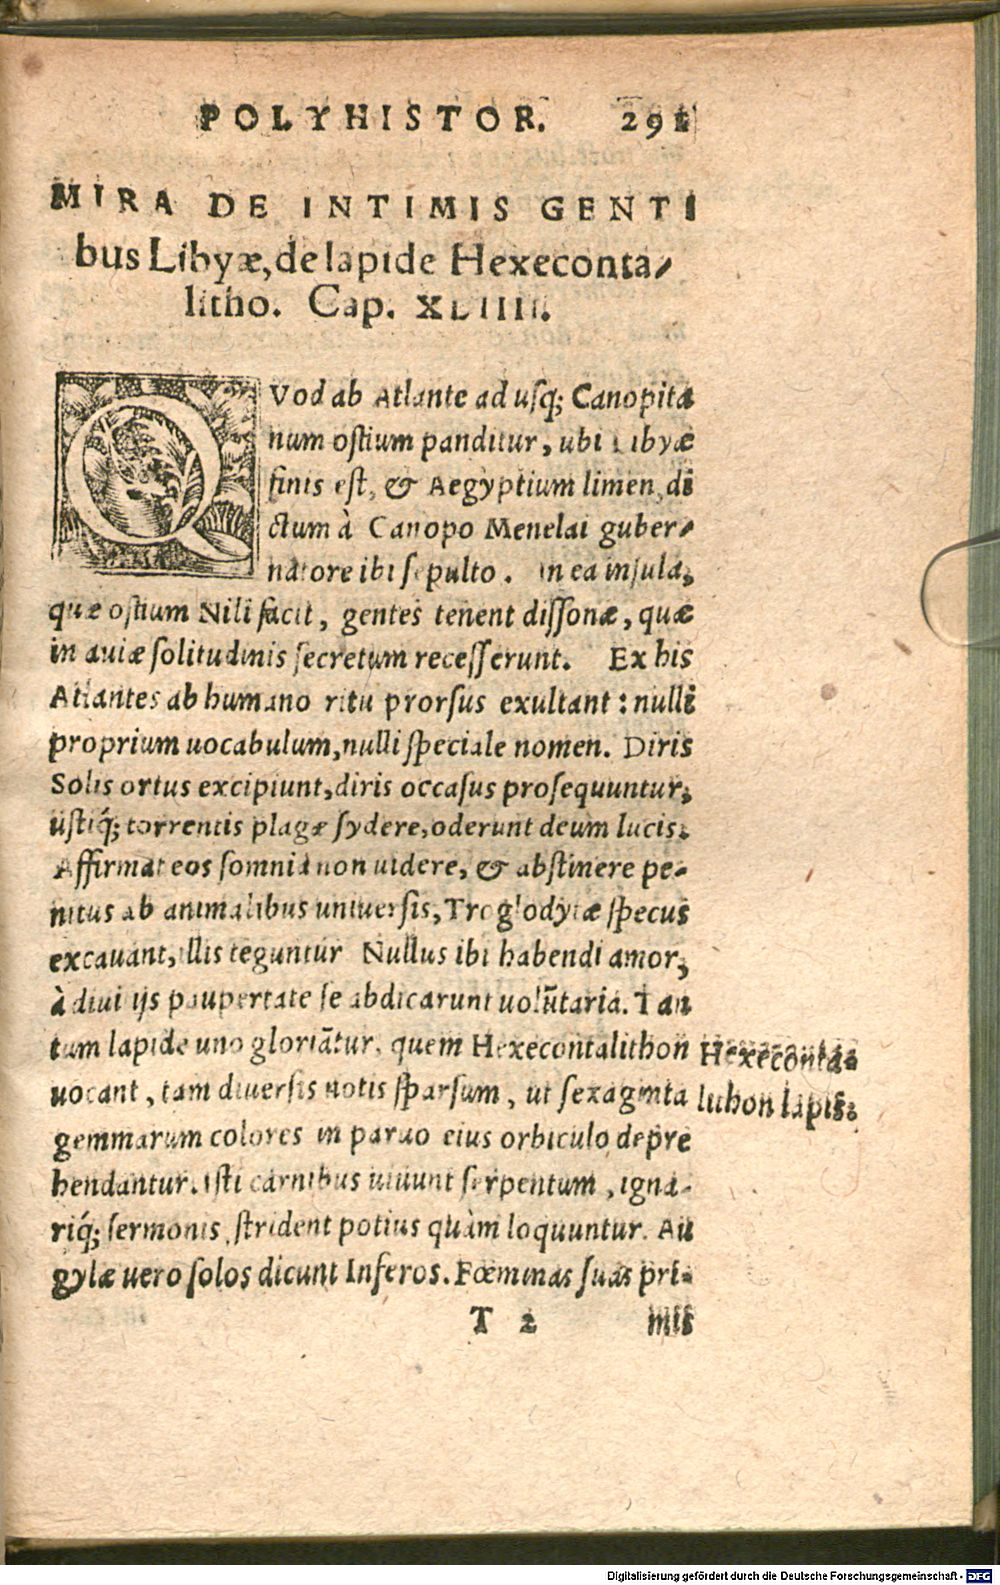 POLYHISTOR. 291
MIRA DE INTIMIS GENTI
bus Libyæ, de lapide Hexeconta-
litho. Cap. XLIIII.
QVod ab Atlante ad usq; Canopita
num ostium panditur, ubi Libyæ
finis est, & Aegyptium limen, di
ctum à Canopo Menelai guber-
natore ibi sepulto. In ea insula,
quæ ostium Nili facit, gentes tenent dissonæ, quæ
in auiæ solitudinis secretum recesserunt. Ex his
Atlantes ab humano ritu prorsus exultant: nulli
proprium uocabulum, nulli speciale nomen. Diris
Solis ortus excipiunt, diris occasus prosequuntur,
ustiq́; torrentis plagæ sydere, oderunt deum lucis.
Affirmat eos somnia non uidere, & abstinere pe-
nitus ab animalibus uniuersis, Troglodytæ specus
excauant, illis teguntur Nullus ibi habendi amor,
à diui ijs paupertate se abdicarunt uolūtaria. Tan
tum lapide uno gloriātur, quem Hexecontalithon
uocant, tam diuersis notis sparsum, ut sexaginta
gemmarum colores in paruo eius orbiculo depre
hendantur. Isti carnibus uiuunt serpentum, igna-
riq́; sermonis, strident potius quàm loquuntur. Au
gylæ uero solos dicunt Inferos. Fœminas suas pri-
T 2 mis
Hexeconta-
lithon lapis.
Digitalisierung gefördert durch die Deutsche Forschungsgemeinschaft - DFG